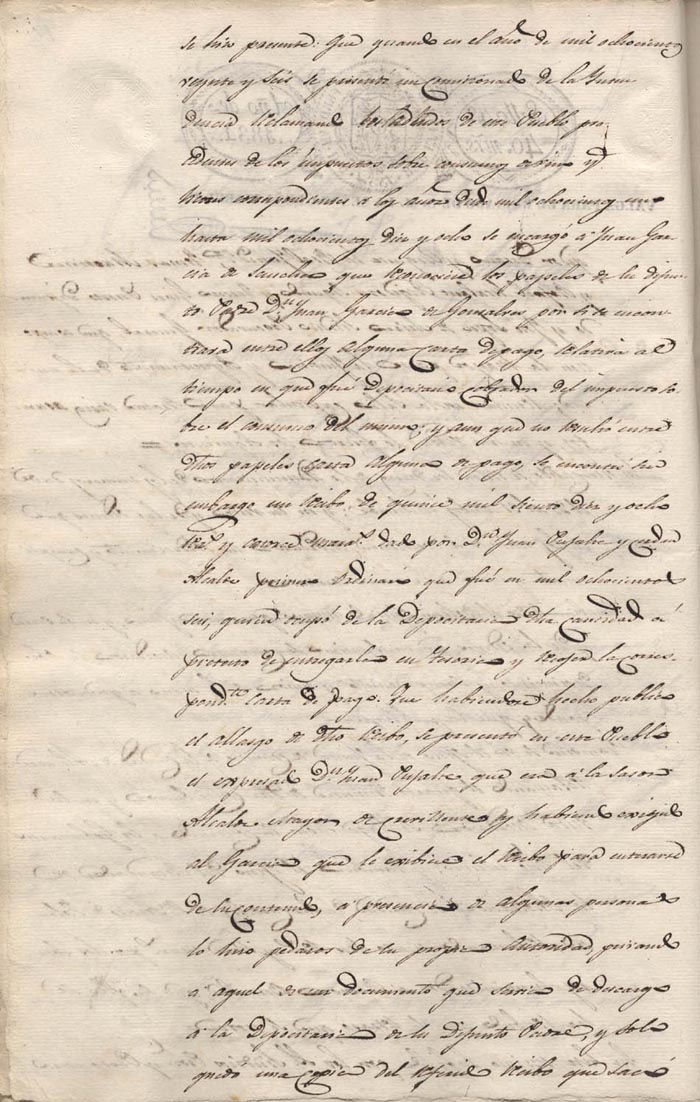 se hiso presente: Que quando en el año de mil ochocientos
veynte y seis se presentó un comisionado de la Inten
dencia reclamando los debitos de este Pueblo pro
cedentes de los impuestos sobre consumo de vino y
correspondientes a los años desde mil ochocientos
hasta mil ochocientos diez y ocho se encargó á Juan Gar
cia de Sanchez que reconociera los papeles de su difun
to Padre Dn. Juan Garcia de Gonsalves por si se encon
trara entre ellos alguna carta de pago, relativa al
tiempo en que fué Depositario cobrador del impuesto so
bre el consumo del mismo; y aun que no resultó entre
dhos papeles carta alguna de pago, se encontró sin
embargo un recibo de quince mil siento diez y ocho
rs. y catorce marav.s dado por Dn. Juan
Alcalde primero ordinario que fué en mil ochocientos
seis, quien recojió de la Depositaria dha cantidad á
pretexto de entregarla en Tesoreria y recojer la corres
pond.te Carta de pago. Que habiendose hecho publico
el allasgo de dho recibo, se presentó en este Pueblo
el expresado Dn. Juan que era á la sason
Alcalde Mayor de Crevillente y habiendo exigido
al Garcia que le exibiese el recibo para enterarse
de su contenido, á presencia de algunas personas
lo hiso pedasos de su propia autoridad, privando
á aquel de un documento que servia de descargo
á la Depositaria de su difunto Padre, y solo
quedó una copia del referido recibo que sacó